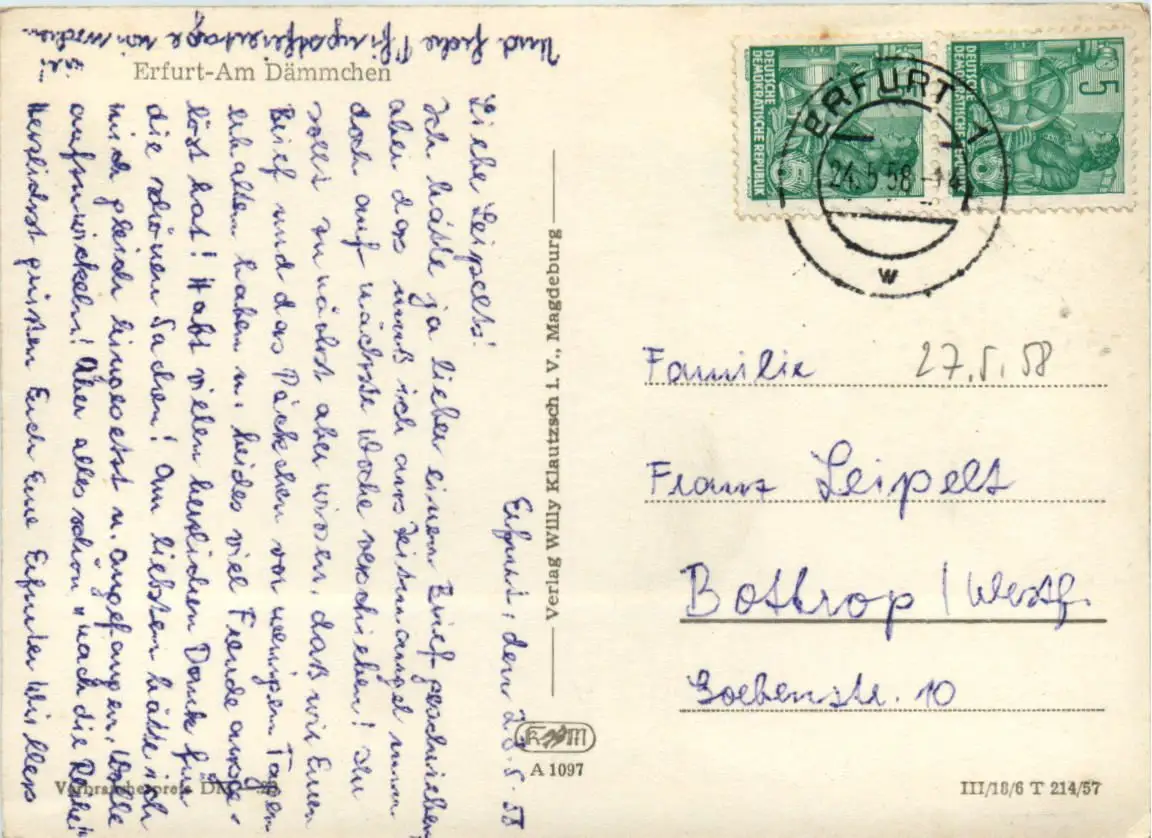 Erfurt-Am Dämmchen
Erfurt, den 23.5.58
Liebe Leipelts!
Ich hätte ja lieber einen Brief geschrieben,
aber das muß ich aus Zeitmangel nun
doch auf nächste Woche verschieben! Ihr
sollt zunächst aber wissen, daß wir Euren
Brief und das Päckchen vor wenigen Tagen
erhalten haben u. beides viel Freude ausge-
löst hat! Habt vielen herzlichen Dank für
die schönen Sachen! Am liebsten hätte ich
mich gleich hingesetzt u. angefangen, Wolle
aufzuwickeln! Aber alles schön "nach die Reihe"!
Herzlichst grüßen Euch Eure Erfurter
Und frohe Pfingstfeiertage wünschen
Verlag Willy Klautzsch i. V., Magdeburg
KWM
A 1097
Verbraucherpreis DM
DEUTSCHE
DEMOKRATISCHE REPUBLIK
5
DEUTSCHE
DEMOKRATISCHE REPUBLIK
5
ERFURT 1
24.5.58-14
w
Familie 27.5.58
Franz Leipelt
Bottrop / Westf.
Goebenstr. 10
III/18/6 T 214/57